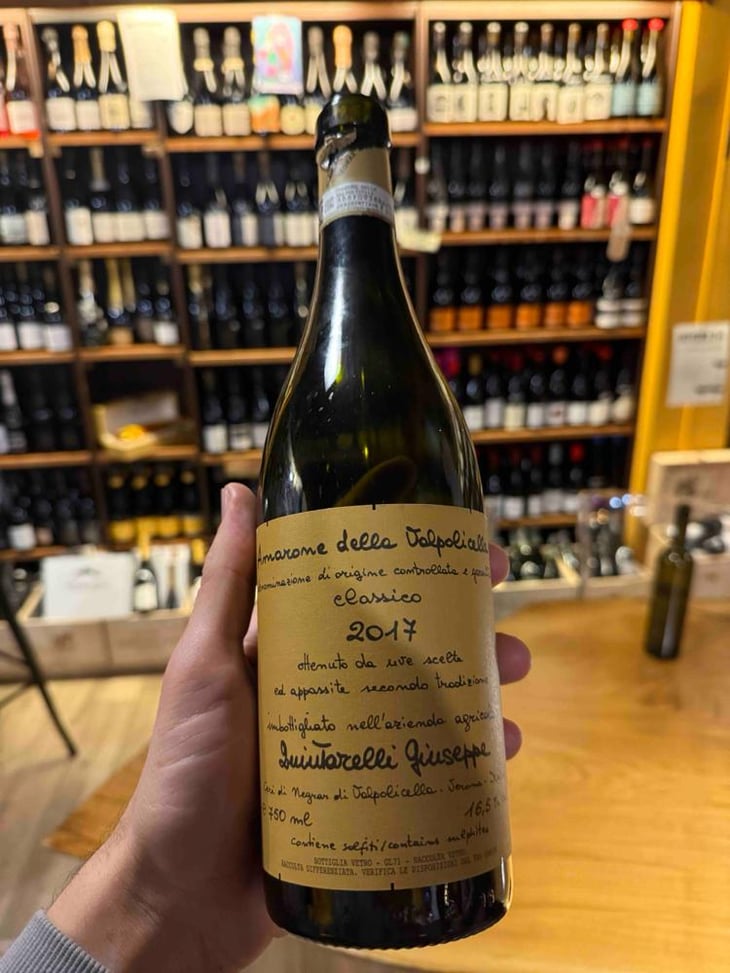 Amarone della Valpolicella
denominazione di origine controllata e
classico
2017
ottenuto da uve scelte
ed appassite secondo tradizione
imbottigliato nell'azienda agricola
Quintarelli Giuseppe
Cerè di Negrar di Valpolicella - Verona -
750 ml
16,5%
contiene solfiti/contains sulphites
BOTTIGLIA VETRO - GL71 - RACCOLTA VETRO.
RACCOLTA DIFFERENZIATA. VERIFICA LE DISPOSIZIONI DEL TUO COMUNE